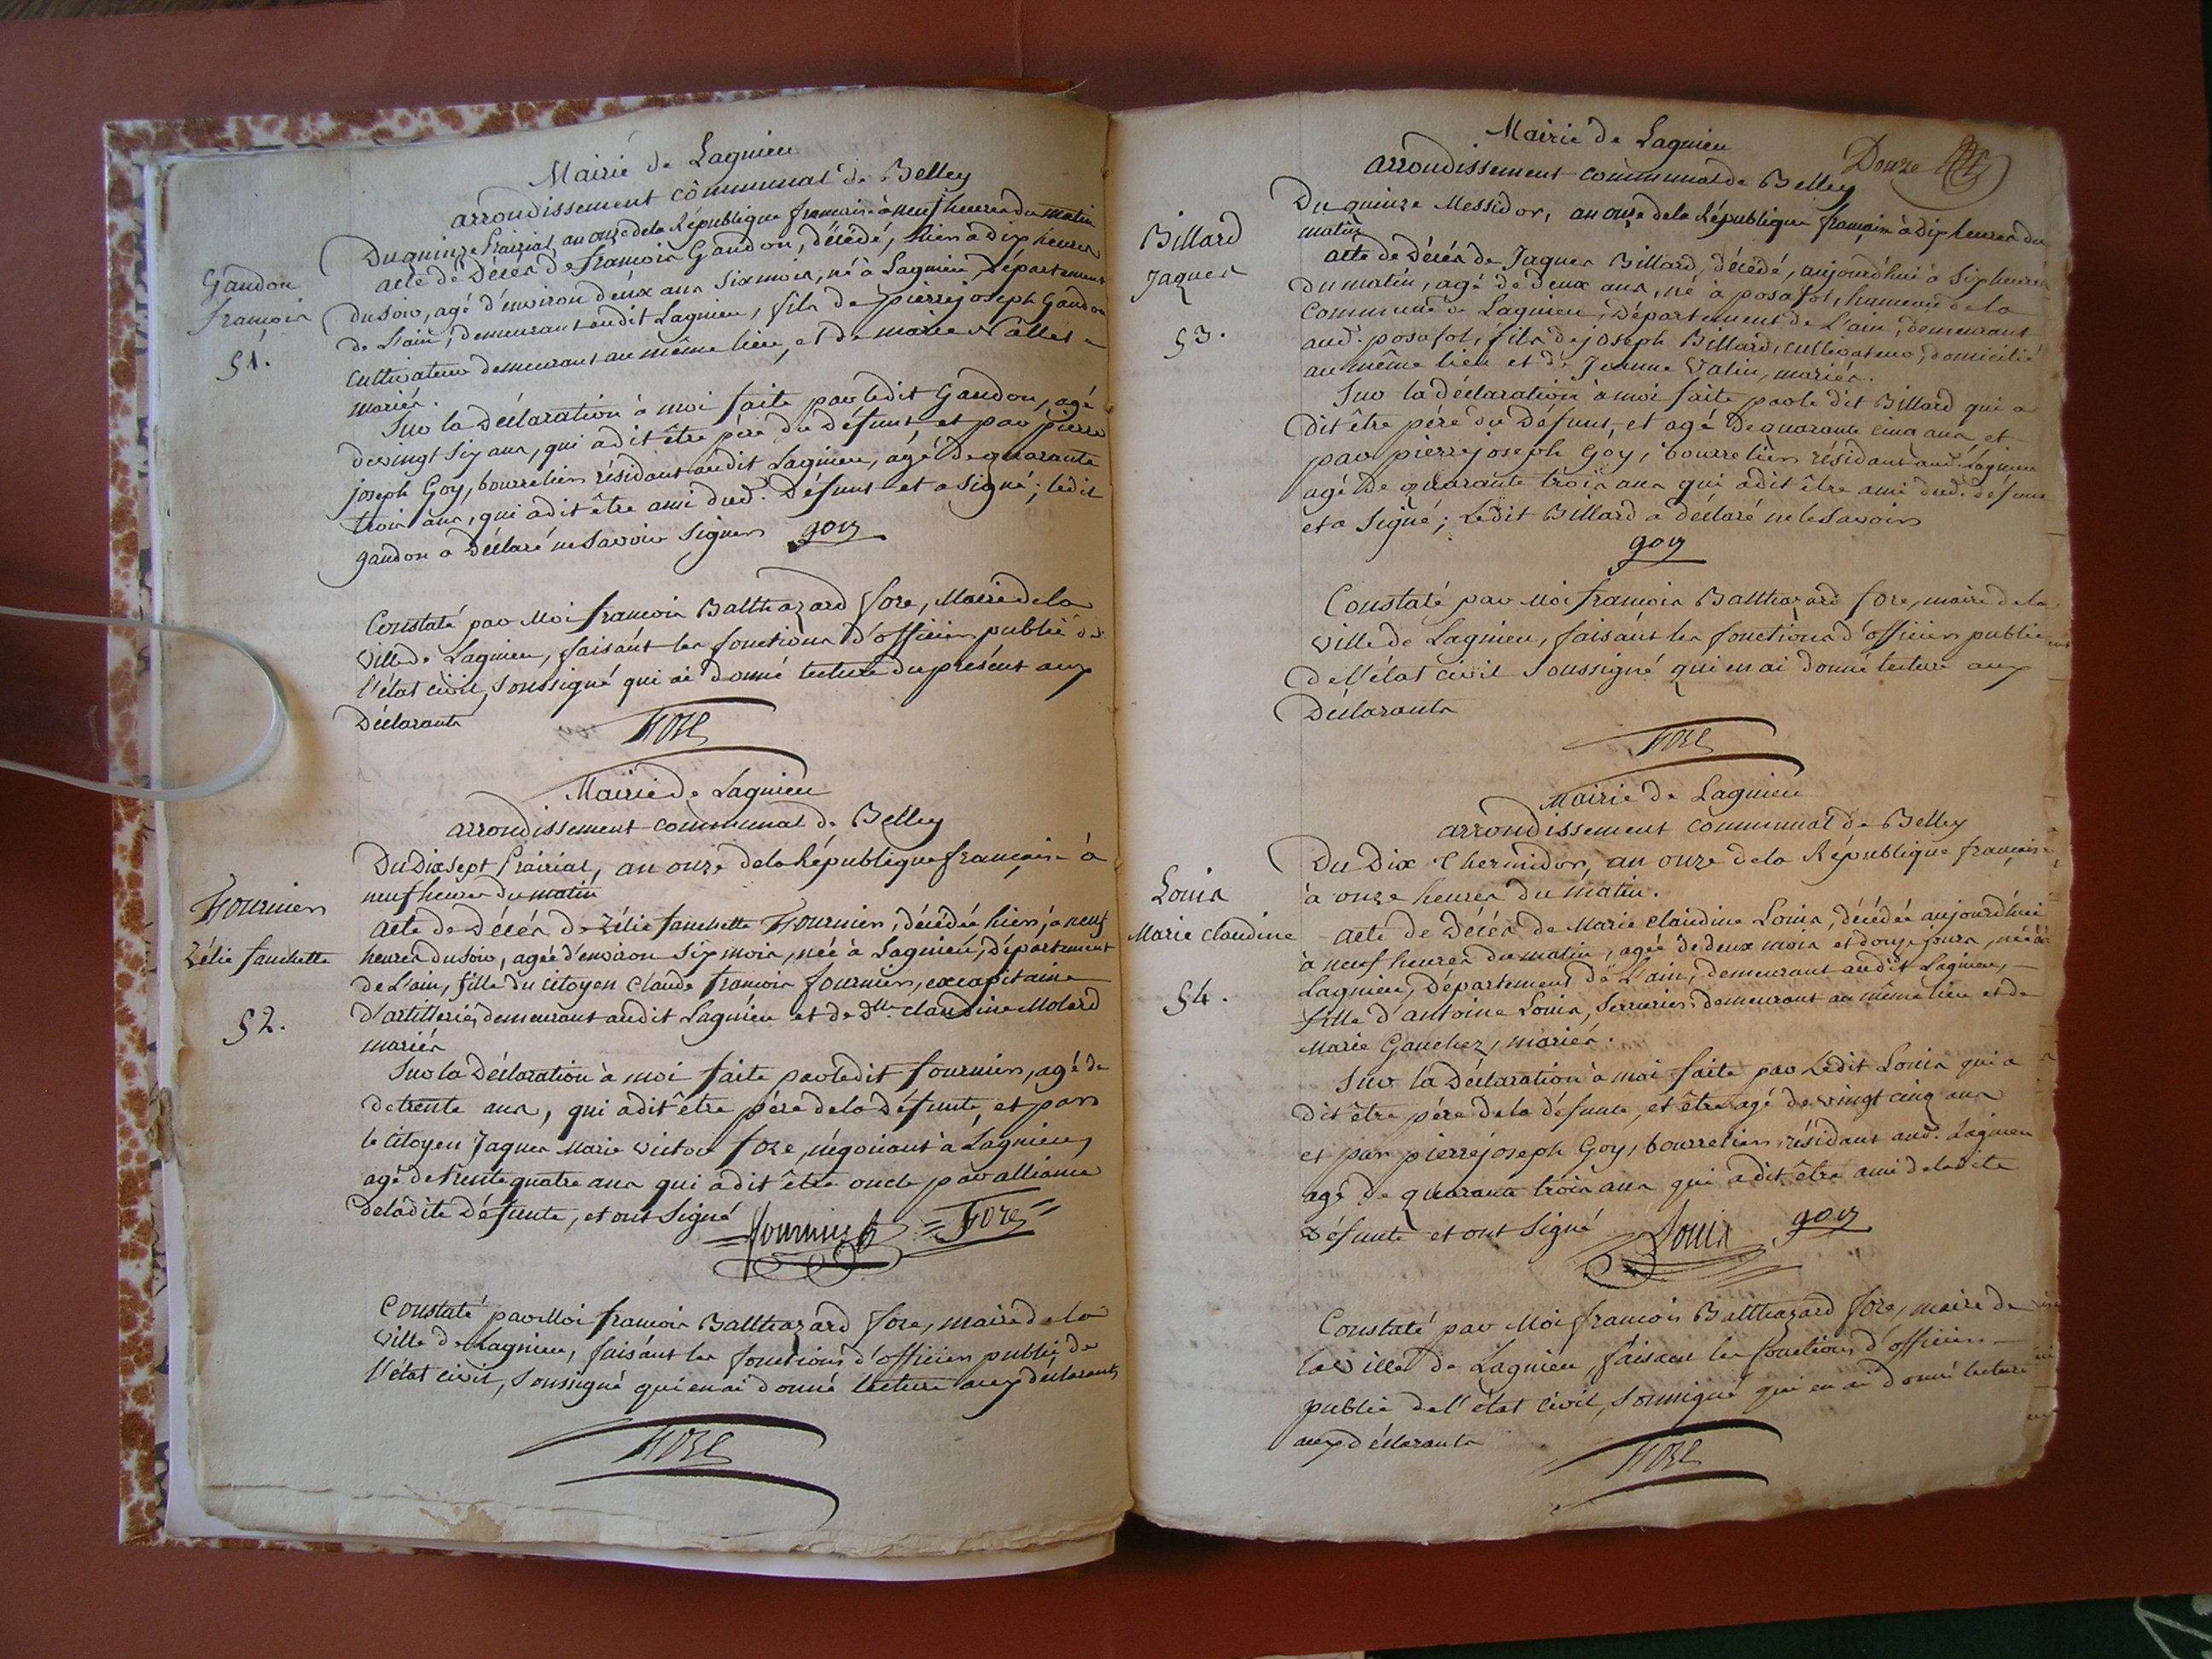 Mairie de Lagnieu
arrondissement communal de Belley
Du quinze Prairial an onze de la République française à neuf heures du matin
Gandon
françois
51.
acte de Décès de françois Gandon, décédé, hier à dix heures
du soir, agé d'environ deux ans six mois, né à Lagnieu, Département
de L'ain, demeurant audit Lagnieu, fils de pierre joseph Gandon
cultivateur demeurant au même lieu, et de marie Nallet
mariés.
Sur la Déclaration à moi faite par ledit Gandon, agé
de vingt six ans, qui a dit être père du Défunt, et par pierre
joseph Goy, bourrelier résidant audit Lagnieu, agé de quarante
trois ans, qui a dit être ami dud. Défunt et a signé; ledit
gandon a Déclaré ne savoir signer goy
Constaté par Moi françois Balthazard fore, Maire de la
ville de Lagnieu, faisant les fonctions d'officier public de
l'état civil, soussigné qui ai donné lecture du présent aux
Déclarants
Fore
Mairie de Lagnieu
arrondissement communal de Belley
Du Dix sept Prairial, an onze de la République française à
neuf heures du matin
Fournier
Zélie fanchette
52.
acte de Décès de Zélie fanchette Fournier, décédée hier, à neuf
heures du soir, agée d'environ six mois, née à Lagnieu, Département
de L'ain, fille du citoyen Claude françois fournier, ex capitaine
d'artillerie, demeurant audit Lagnieu et de dlle. claudine Molard
mariés
Sur la Déclaration à moi faite par ledit fournier, agé de
de trente ans, qui a dit être père de la défunte, et par
le citoyen Jaques Marie victor fore, négociant à Lagnieu,
agé de trente quatre ans qui a dit être oncle par alliance
de ladite Défunte, et ont signé Fournier Fore
Constaté par Moi françois Balthazard fore, maire de la
ville de Lagnieu, faisant les fonctions d'officier public de
l'état civil, soussigné qui en ai donné lecture aux déclarants
Fore
Mairie de Lagnieu
Douze
arrondissement communal de Belley
Du quinze Messidor, an onze de la République française à dix heures du
matin
Billard
Jaques
53.
acte de Décès de Jaques Billard, décédé, aujourd'hui à six heures
du matin, agé de deux ans, né à posafol, hameau de la
Commune de Lagnieu, Département de L'ain, demeurant
aud. posafol, fils de joseph Billard, cultivateur, domicilié
au même lieu et de Jeanne Valin, mariés.
Sur la déclaration à moi faite par le dit Billard qui a
dit être père du Défunt, et agé de quarante cinq ans, et
par pierre joseph Goy, bourrelier résidant aud. Lagnieu
agé de quarante trois ans qui a dit être ami dud. défunt
et a signé; Ledit Billard a déclaré ne le savoir
goy
Constaté par Moi françois Balthazard fore, maire de la
ville de Lagnieu, faisant les fonctions d'officier public
de l'état civil soussigné qui en ai donné lecture aux
Déclarants
Fore
Mairie de Lagnieu
arrondissement communal de Belley
Du Dix Thermidor, an onze de la République française,
à onze heures du matin.
Louis
Marie claudine
54.
acte de Décès de Marie claudine Louis, décédée aujourd'hui
à neuf heures du matin, agée de deux mois et douze jours, née à
Lagnieu, Département de L'ain, demeurant audit Lagnieu,
fille d'antoine Louis, serrurier demeurant au même lieu et de
Marie Ganchez, mariés.
Sur la Déclaration à moi faite par Ledit Louis qui a
dit être père de la défunte, et être agé de vingt cinq ans
et par pierre joseph Goy, bourrelier, résidant aud. Lagnieu
agé de quarana trois ans qui a dit être ami de ladite
Défunte et ont signé Louis goy
Constaté par Moi françois Balthazard fore, maire de
la ville de Lagnieu, faisant les fonctions d'officier
public de l'état civil, soussigné qui en ai donné lecture
aux déclarants
Fore